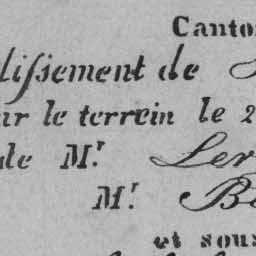 Canto
lissement de
ur le terrein le 2
de Mr. Ler
Mr. B
et sous